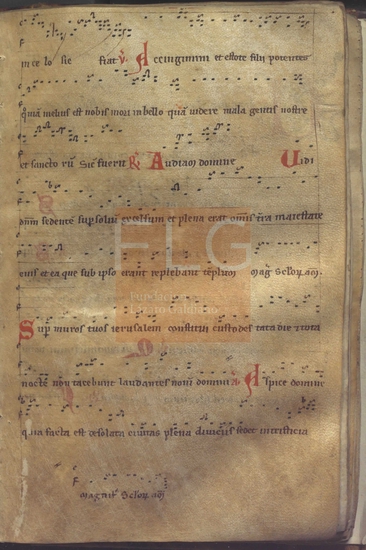 in ce lo sic fiat v. Accingimini et estote filii potentes
qm̄ melius est nobis mori in bello qm̄ videre mala gentis nostre
et sancto rū Sic fuerit R Audiam domine Uidi
dnm̄ sedente sup soliū excelsum et plena erat omīs t̄ra maiestate
eius et ea que sub ipso erant replebant templum mag̃ Sclorꝝ am̄.
Sup muros tuos ierusalem constitui custodes tota die ⁊ tota
nocte non tacebunt laudantes nom̄ domini Aspice domine
quia facta est desolata ciuitas plena diuiciis sedet in tristicia
magnif̃ Sclorꝝ am̄
FLG
Fundación
Lázaro Galdiano